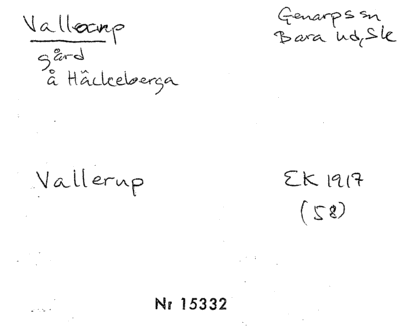 Vallarp
Genarps sn
Bara hd, Sk
gård
å Häckeberga
Vallerup
EK 1917
(58)
Nr 15332